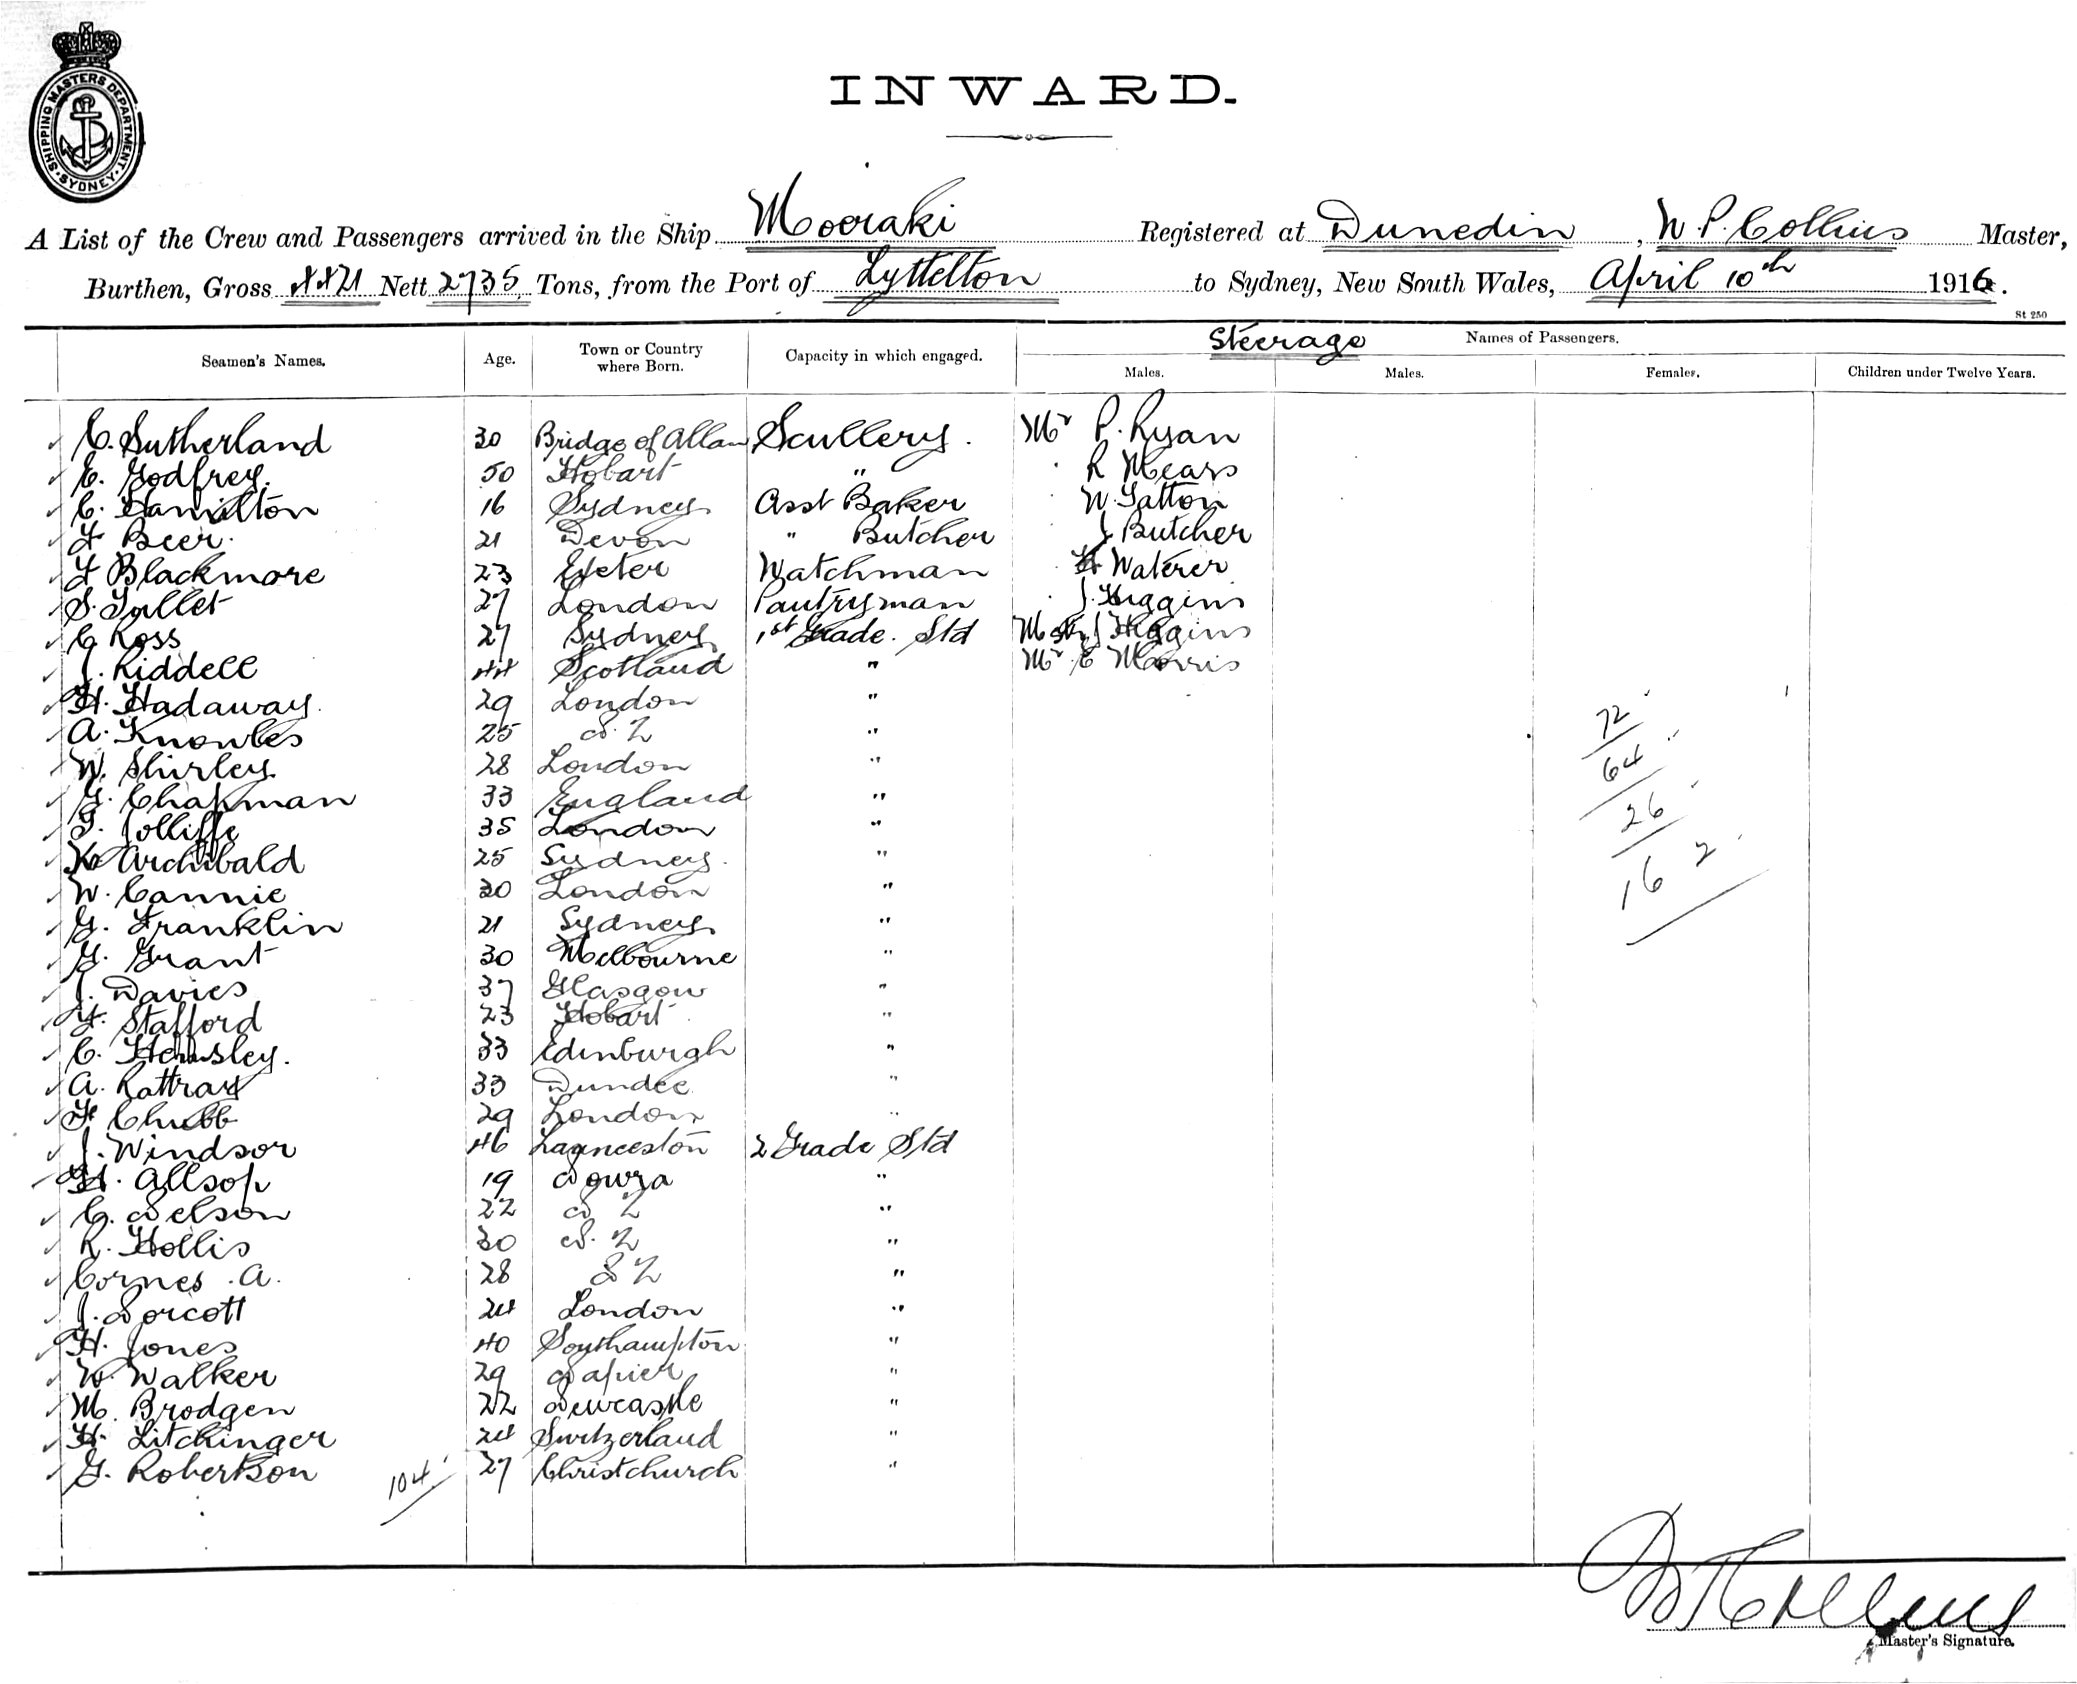 SHIPPING MASTERS DEPARTMENT. SYDNEY.
INWARD.
A List of the Crew and Passengers arrived in the Ship Moeraki Registered at Dunedin, W. P. Collins Master,
Burthen, Gross 4421 Nett 2735 Tons, from the Port of Lyttelton to Sydney, New South Wales, April 10th 1916.
St 250
Seamen's Names. Age. Town or Country where Born. Capacity in which engaged. Steerage Names of Passengers.
Males. Males. Females. Children under Twelve Years.
C. Sutherland 30 Bridge of Allan Scullery. Mr P. Ryan
E. Godfrey. 50 Hobart " R Mears
C. Hamilton 16 Sydney Asst Baker W. Tatton
F Beer. 21 Devon " Butcher J Butcher
F Blackmore 23 Exeter Watchman H Waterer
S. Tullet 27 London Pantryman J. Higgins
C Ross 27 Sydney 1st Grade. Std Mstr J Higgins
J. Riddell 44 Scotland " Mr E Morris
H. Hadaway. 29 London "
A. Knowles 25 N. Z "
W. Shirley 28 London "
G. Chapman 33 England "
T. Jolliffe 35 London "
K Archibald 25 Sydney. "
W. Cannie 30 London "
G. Franklin 21 Sydney "
G. Grant 30 Melbourne "
J. Davies 37 Glasgow "
F. Stafford 23 Hobart "
C. Hemsley. 33 Edinburgh "
A. Rattray 33 Dundee "
F Chubb 29 London "
J. Windsor 46 Launceston 2 Grade Std
H. Allsop 19 Nowra "
C. Nelson 22 N Z "
R. Hollis 30 N. Z "
Cornes . A. 28 N Z "
J. Norcott 24 London "
H. Jones 40 Southampton "
W. Walker 29 Napier "
M. Brodgen 22 Newcastle "
H. Litchinger 24 Switzerland "
G. Robertson 27 Christchurch "
104
72
64
26
16 2
W P Collins
Master's Signature.